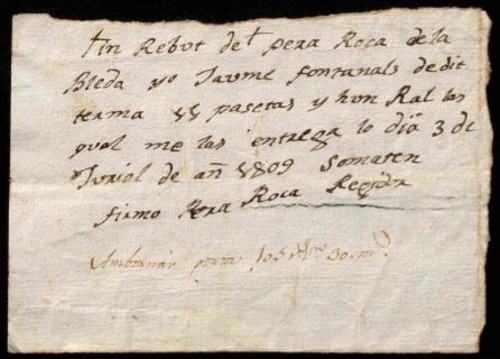 tin Rebut de t pera Roca de la
Bleda yo Jaume fontanals dedit
terma 11 pasetas y hun Ral las
qual me las entrega lo dia 3 de
Juriol de añ 1809 Somaten
firmo Pera Roca Regidr